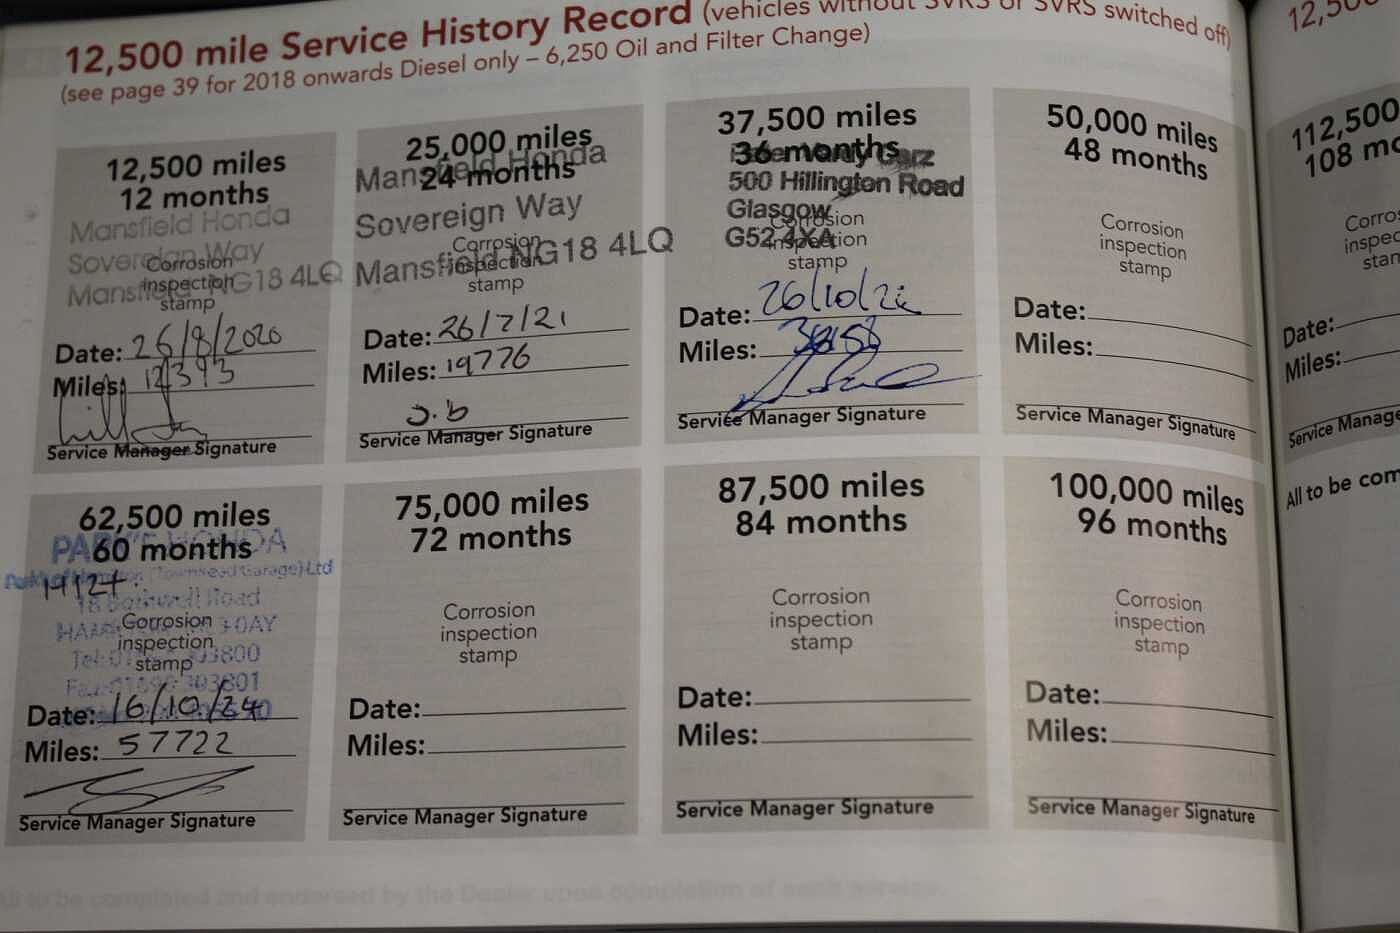 12,500 mile Service History Record (vehicles without SVRS or SVRS switched off)
(see page 39 for 2018 onwards Diesel only – 6,250 Oil and Filter Change)
12,500 miles
12 months
Mansfield Honda
Sovereign Way
Mansfield NG18 4LQ
Corrosion
inspection
stamp
Date: 26/8/2020
Miles: 12393
Service Manager Signature
25,000 miles
24 months
Mansfield Honda
Sovereign Way
Mansfield NG18 4LQ
Corrosion
inspection
stamp
Date: 26/7/21
Miles: 19776
J.b
Service Manager Signature
37,500 miles
36 months
Carz
500 Hillington Road
Glasgow
G52 4XA
Corrosion
inspection
stamp
Date: 26/10/22
Miles:
Service Manager Signature
50,000 miles
48 months
Corrosion
inspection
stamp
Date:
Miles:
Service Manager Signature
62,500 miles
60 months
PARK'S HONDA
(Townhead Garage) Ltd
18 Bothwell Road
Corrosion
inspection
stamp
Date: 16/10/24
Miles: 57722
Service Manager Signature
75,000 miles
72 months
Corrosion
inspection
stamp
Date:
Miles:
Service Manager Signature
87,500 miles
84 months
Corrosion
inspection
stamp
Date:
Miles:
Service Manager Signature
100,000 miles
96 months
Corrosion
inspection
stamp
Date:
Miles:
Service Manager Signature
All to be completed and endorsed by the Dealer upon completion of each service.
12,50
112,500
108 mo
Corros
inspec
stam
Date:
Miles:
Service Manage
All to be com